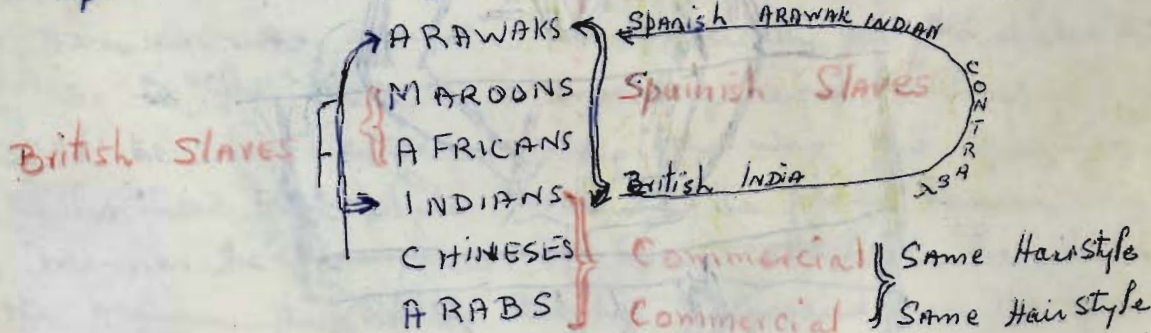 ARAWAKS Spanish ARAWAK INDIAN
MAROONS Spainish Slaves
British Slaves AFRICANS
INDIANS British India
CHINESES Commercial Same Hairstyle
ARABS Commercial Same Hairstyle